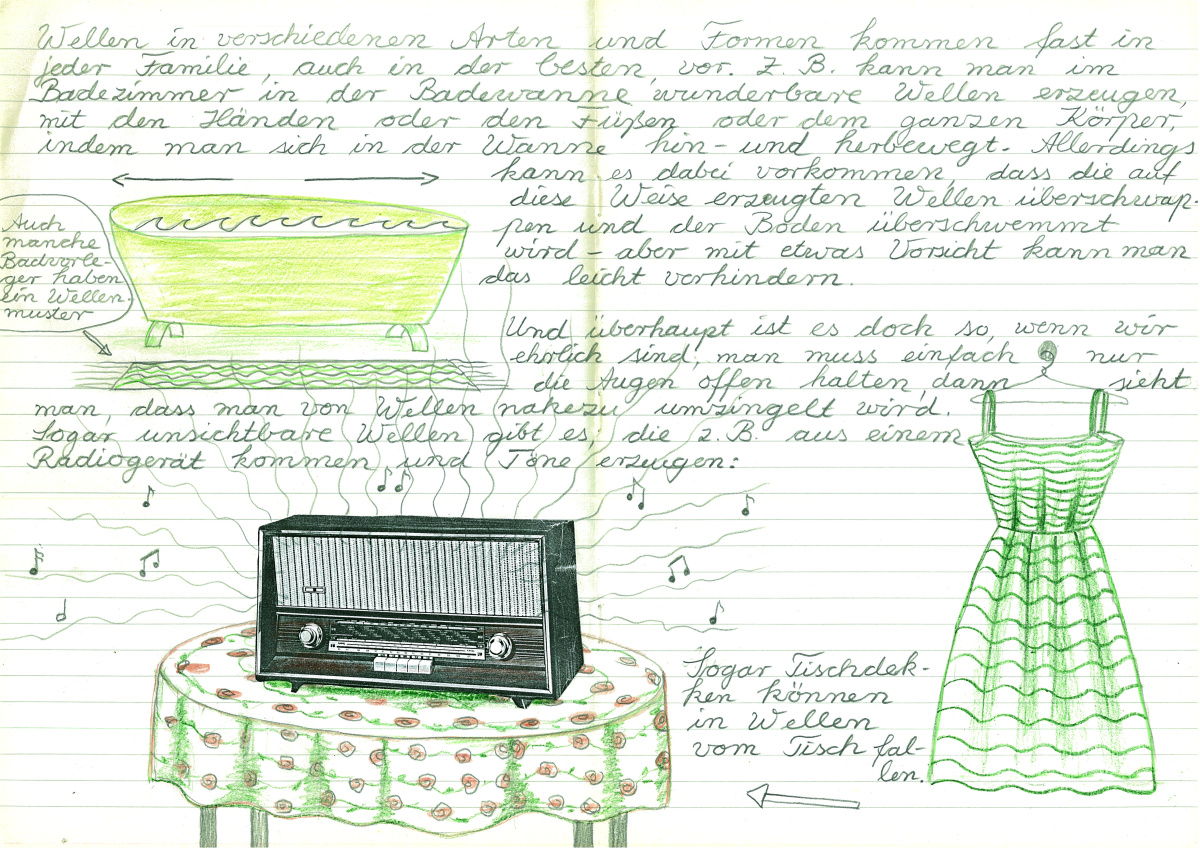 Wellen in verschiedenen Arten und Formen kommen fast in
jeder Familie, auch in der besten, vor. Z. B. kann man im
Badezimmer in der Badewanne wunderbare Wellen erzeugen,
mit den Händen oder den Füßen oder dem ganzen Körper,
indem man sich in der Wanne hin- und herbewegt. Allerdings
kann es dabei vorkommen, dass die auf
diese Weise erzeugten Wellen überschwap-
pen und der Boden überschwemmt
wird – aber mit etwas Vorsicht kann man
das leicht verhindern.
Auch
manche
Badvorle-
ger haben
ein Wellen-
muster
Und überhaupt ist es doch so, wenn wir
ehrlich sind, man muss einfach nur
die Augen offen halten, dann sieht
man, dass man von Wellen nahezu umzingelt wird.
Sogar unsichtbare Wellen gibt es, die z. B. aus einem
Radiogerät kommen und Töne erzeugen:
Sogar Tischdek-
ken können
in Wellen
vom Tisch fal-
len.